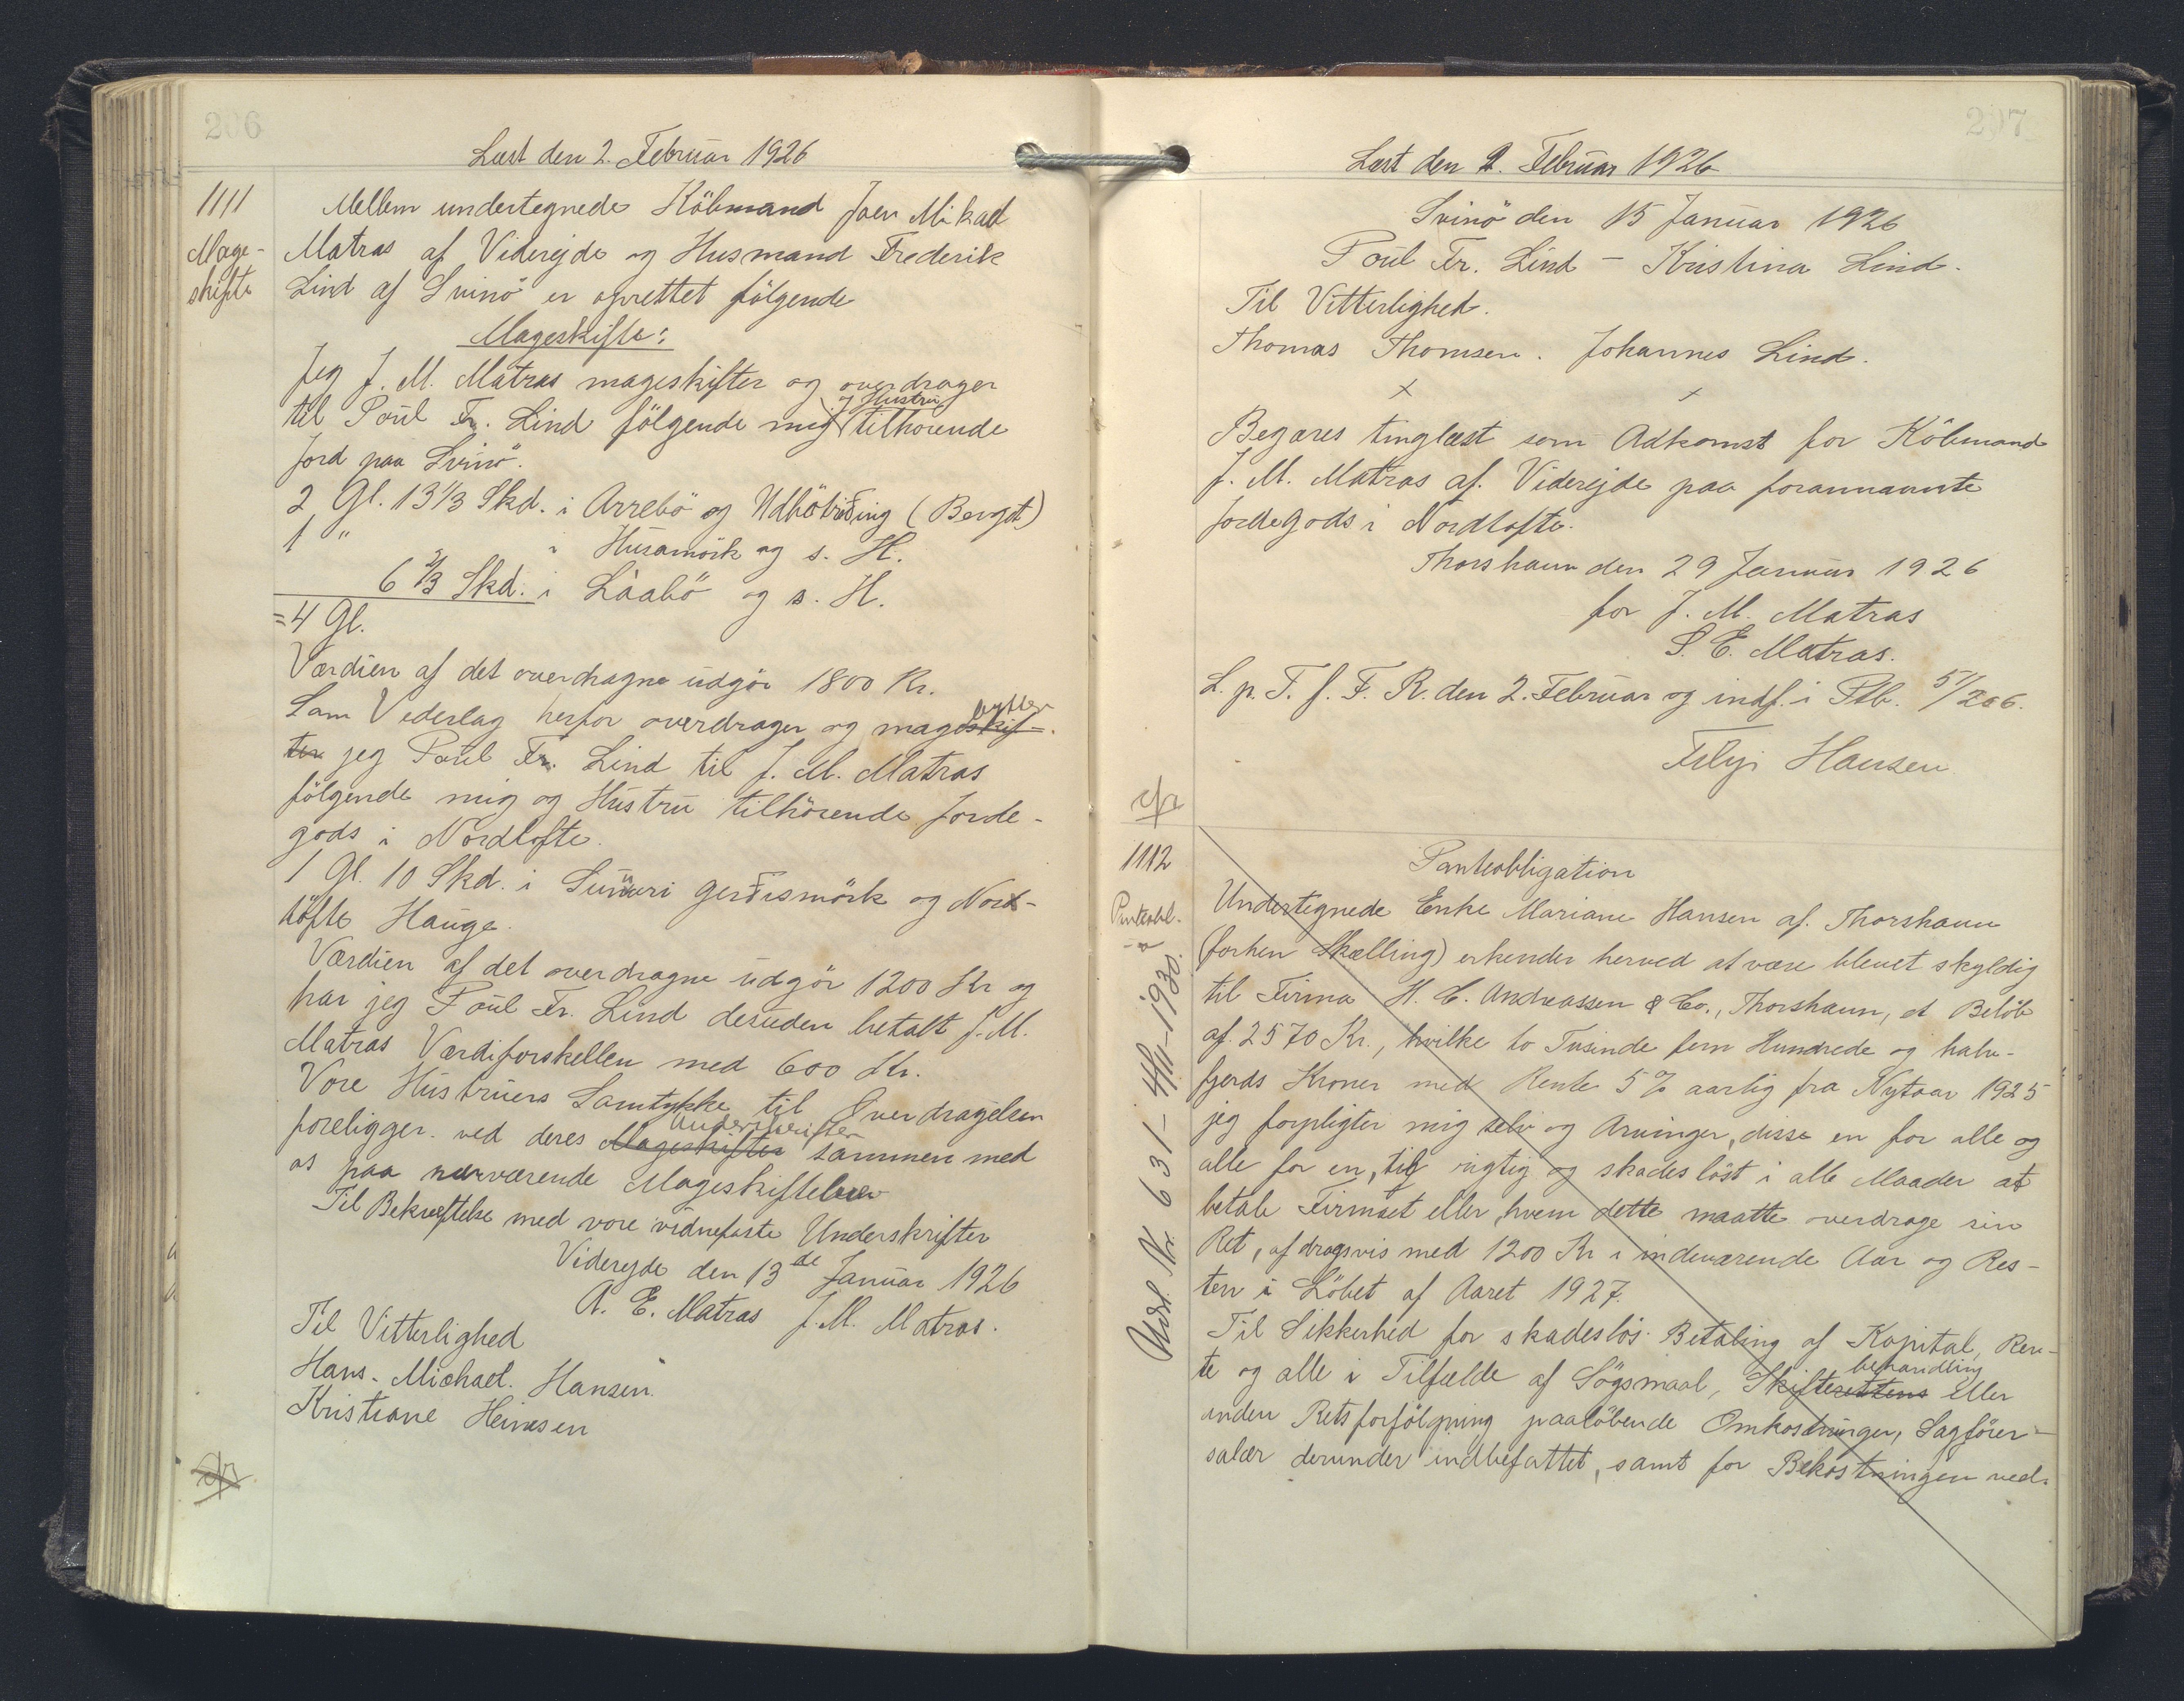 206
Læst den 2. Februar 1926
1111
Mage-
skifte
Mellem undertegnede Köbmand Joen Mikael
Matras af Viderejde og Husmand Frederik
Lind af Svinö er oprettet fölgende
Mageskifte:
Jeg J. M. Matras mageskifter og overdrager
til Poul Fr. Lind fölgende mig og Hustru tilhorende
Jord paa Svinö.
2 Gl. 13 1/3 Skd. i Arrebö og Udbötriðing (Bergt)
1 " " i Husamörk og s. H.
6 2/3 Skd. i Láabö og s. H.
= 4 Gl.
Værdien af det overdragne udgör 1800 Kr.
Som Vederlag herfor overdrager og mageskif-
bytter
ter jeg Poul Fr. Lind til J. M. Matras
fölgende mig og Hustru tilhörende Jorde-
gods i Nordtofte.
1 Gl. 10 Skd. i Sunnari gerðismörk og Nord-
töfte Hauge.
Værdien af det overdragne udgör 1200 Kr og
har jeg Poul Fr. Lind desuden betalt J. M.
Matras Værdiforskellen med 600 Kr.
Vore Hustruers Samtykke til Overdragelsen
foreligger ved deres Mageskifter Underskrifter sammen med
os paa nærværende Mageskiftebrev
Til Bekræftelse med vore vidnefaste Underskrifter
Viderejde den 13de Januar 1926
A. E. Matras J. M. Matras.
Til Vitterlighed
Hans. Michael. Hansen.
Kristiane Heinesen
207
Læst den 2. Februar 1926
Svinö den 15 Januar 1926
Poul Fr. Lind - Kristina Lind.
Til Vitterlighed.
Thomas Thomsen. Johannes Lind.
x x
Begæres tinglæst som Adkomst for Köbmand
J. M. Matras af Viderejde paa forannævnte
Jordegods i Nordtofte.
Thorshavn den 29 Januar 1926
for J. M. Matras
S. E. Matras.
L. p. T. f. F. R. den 2. Februar og indf. i Ptb. 51/206.
Hansen
1112
Panteobl.
Udsl. Nr. 631 - 4/11-1930.
Panteobligation
Undertegnede Enke Mariane Hansen af Thorshavn
(forhen Skælling) erkender herved at være blevet skyldig
til Firma H. C. Andreassen & Co., Thorshavn, et Belöb
af 2570 Kr., hvilke to Tusinde fem Hundrede og halv-
fjerds Kroner med Rente 5% aarlig fra Nytaar 1925
jeg forpligter mig selv og Arvinger, disse en for alle og
alle for en, til rigtig og skadeslöst i alle Maader at
betale Firmaet eller, hvem dette maatte overdrage sin
Ret, afdragsvis med 1200 Kr i indeværende Aar og Res-
ten i Löbet af Aaret 1927.
Til Sikkerhed for skadeslös Betaling af Kapital, Ren-
te og alle i Tilfælde af Sögsmaal, Skifterettens behandling eller
anden Retsforfölgning paalöbende Omkostninger, Sagförer-
salær derunder indbefattet, samt for Bekostningen ved